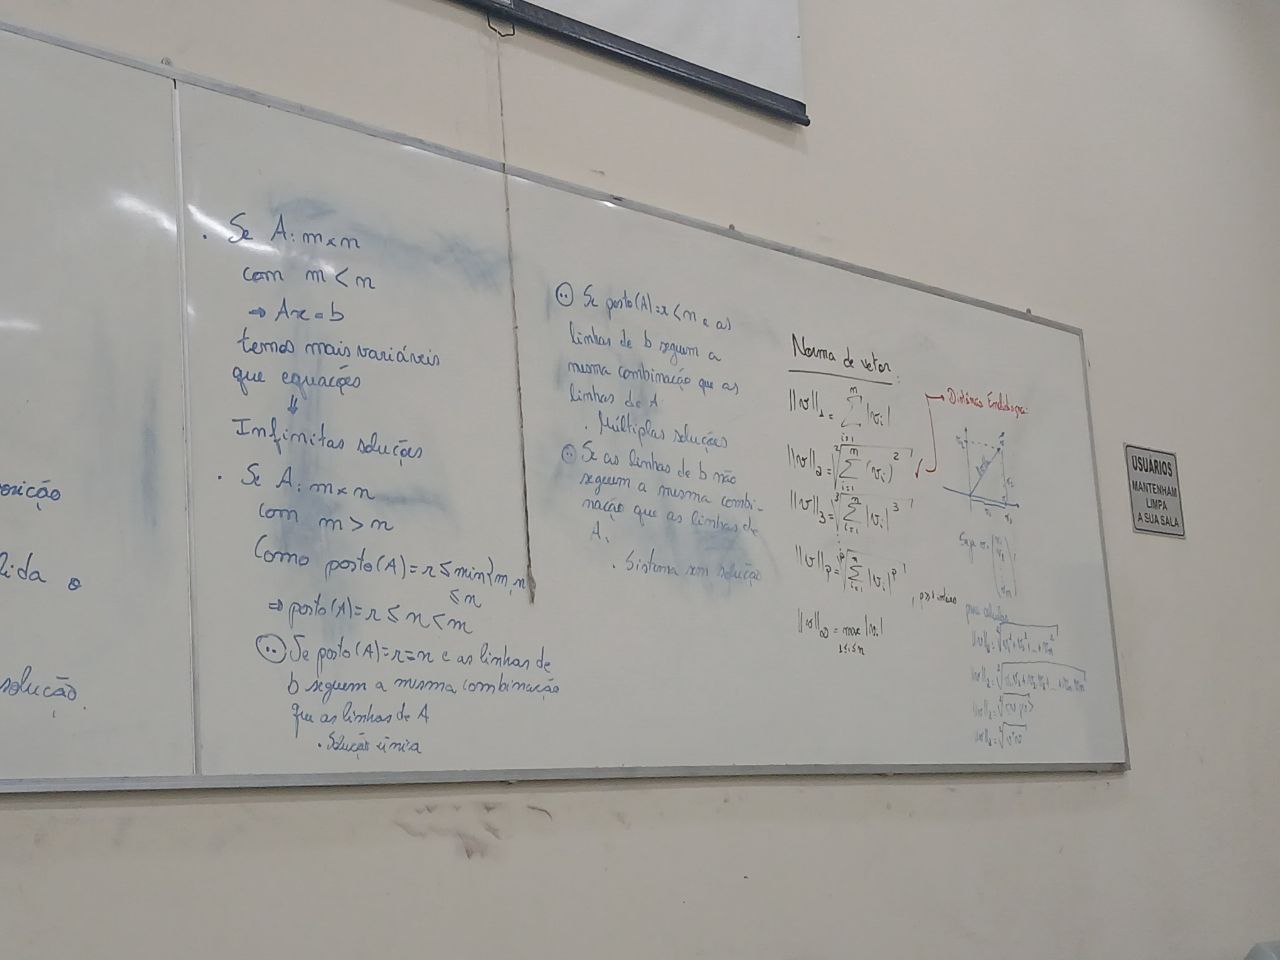 osição
lida o
solução.
. Se A: m×n
com m < n
⇒ Ax = b
temos mais variáveis
que equações
⇓
Infinitas soluções
. Se A: m×n
com m > n
Como posto(A) = r ≤ min{m, n
≤ n
⇒ posto(A) = r ≤ n < m
Se posto(A) = r = n e as linhas de
b seguem a mesma combinação
que as linhas de A
. Solução única
Se posto(A) = r < n e as
linhas de b seguem a
mesma combinação que as
linhas de A
. Múltiplas soluções
Se as linhas de b não
seguem a mesma combi-
nação que as linhas de
A,
. Sistema sem solução
Norma de vetor:
||v||₁ = Σ |vᵢ|
||v||₂ = ²√Σ (vᵢ)²
||v||₃ = ³√Σ |vᵢ|³
||v||ₚ = ᵖ√Σ |vᵢ|ᵖ
||v||∞ = max |vᵢ|
1≤i≤n
Distância Euclidiana
Seja v =
para calcular
||v||₂ = ²√v₁² + v₂² + ... + vₙ²
||v||₂ = ²√v₁.v₁ + v₂.v₂ + ... + vₙ.vₙ
USUÁRIOS
MANTENHAM
LIMPA
A SUA SALA